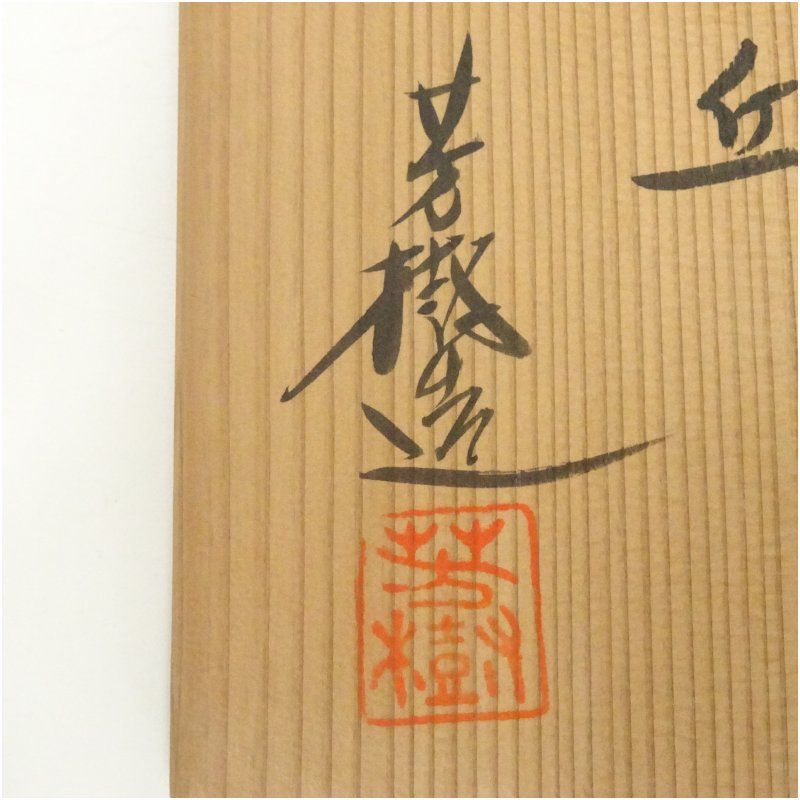 丘
芳樹造
芳樹